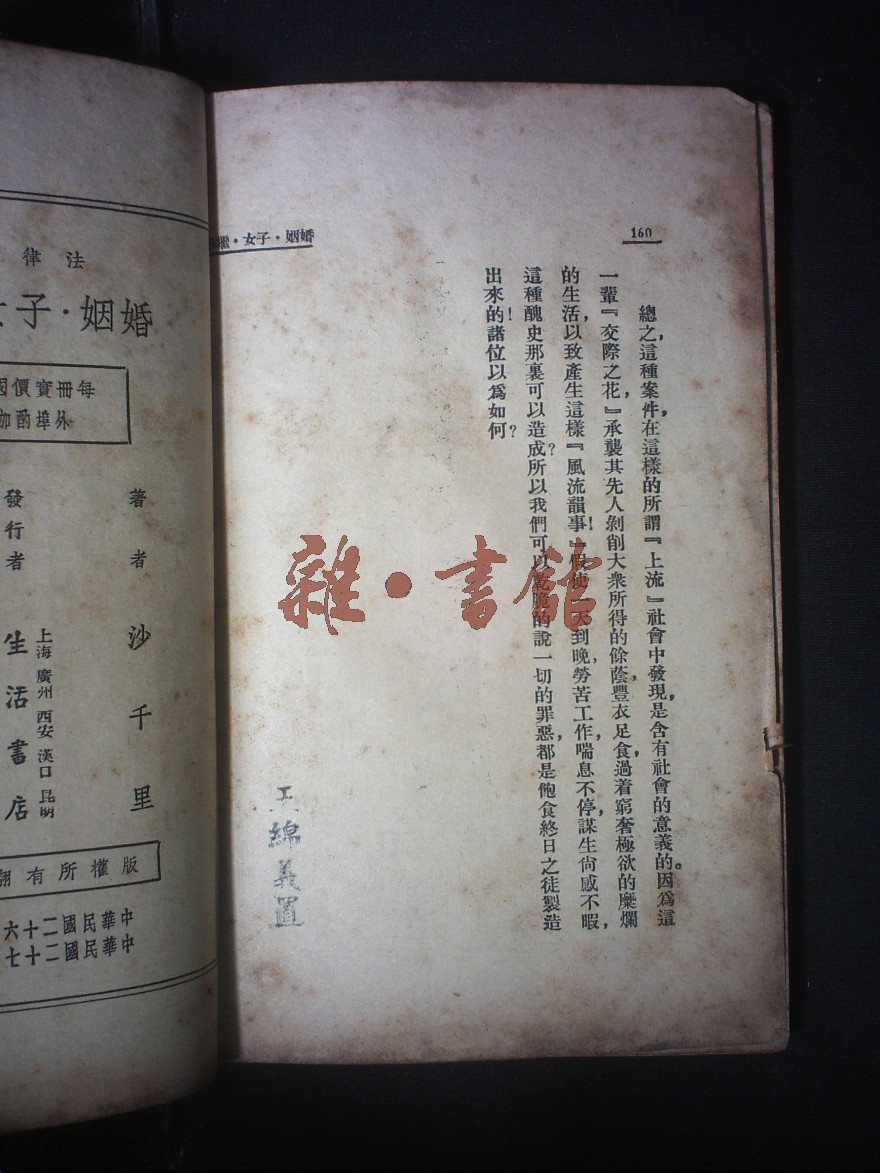 160
婚姻・子女・
總之，這種案件，在這樣的所謂『上流』社會中發現，是含有社會的意義的。因爲這
一輩『交際之花』，承襲其先人剝削大衆所得的餘蔭，豐衣足食，過着窮奢極欲的糜爛
的生活，以致產生這樣『風流韻事』！假使一天到晚，勞苦工作，喘息不停，謀生尙感不暇，
這種醜史那裏可以造成？所以我們可以乾脆的說一切的罪惡，都是飽食終日之徒製造
出來的！諸位以爲如何？
雜・書館
王綿義置
法律
婚姻・子女
每冊實價國
外埠酌加
著者 沙千里
發行者 生活書店
上海 廣州 西安 漢口 昆明
版權所有翻
中華民國二十六
中華民國二十七